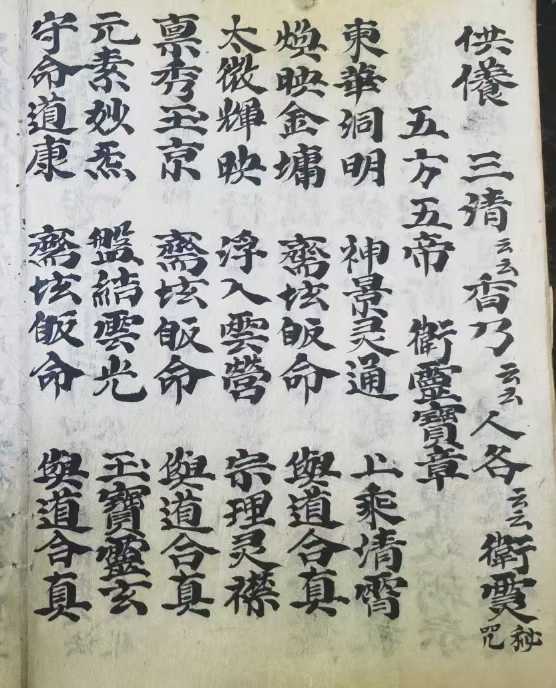 供養 三清云云香乃云云人各云云衛灵秘咒
五方五帝 衛靈寶章
東華洞明 神景灵通 上乘清霄
煥映金墉 齋坛皈命 與道合真
太微輝映 浮入雲營 宗理灵襟
禀秀玉京 齋坛皈命 與道合真
元素妙炁 盤結雲光 玉寶靈玄
守命道康 齋坛皈命 與道合真